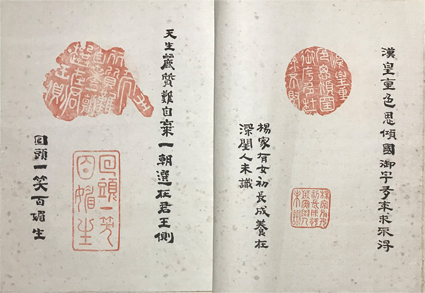 漢皇重色思傾國御宇多年求不得
楊家有女初長成養在
深閨人未識
天生麗質難自棄一朝選在君王側
回頭一笑百媚生
回頭一笑
百媚生